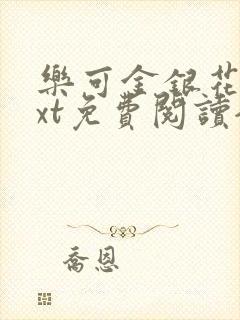 樂可金銀花
xt免費閱讀
喬恩